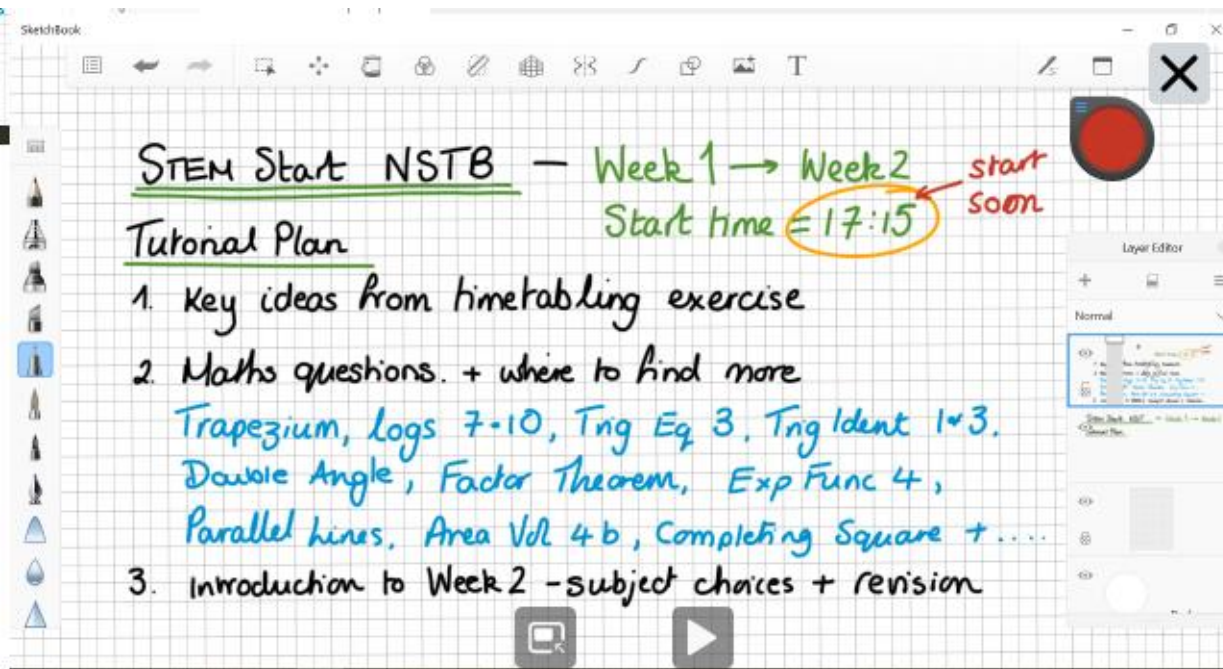 SketchBook
T
STEM Start NSTB – Week 1 → Week 2
start
soon
Start time = 17:15
Tutorial Plan
1. Key ideas from timetabling exercise
2. Maths questions. + where to find more
Trapezium, logs 7-10, Trig Eq 3, Trig Ident 1+3.
Double Angle, Factor Theorem, Exp Func 4,
Parallel Lines, Area Vol 4b, Completing Square + ....
3. Introduction to Week 2 - subject choices + revision
Layer Editor
Normal